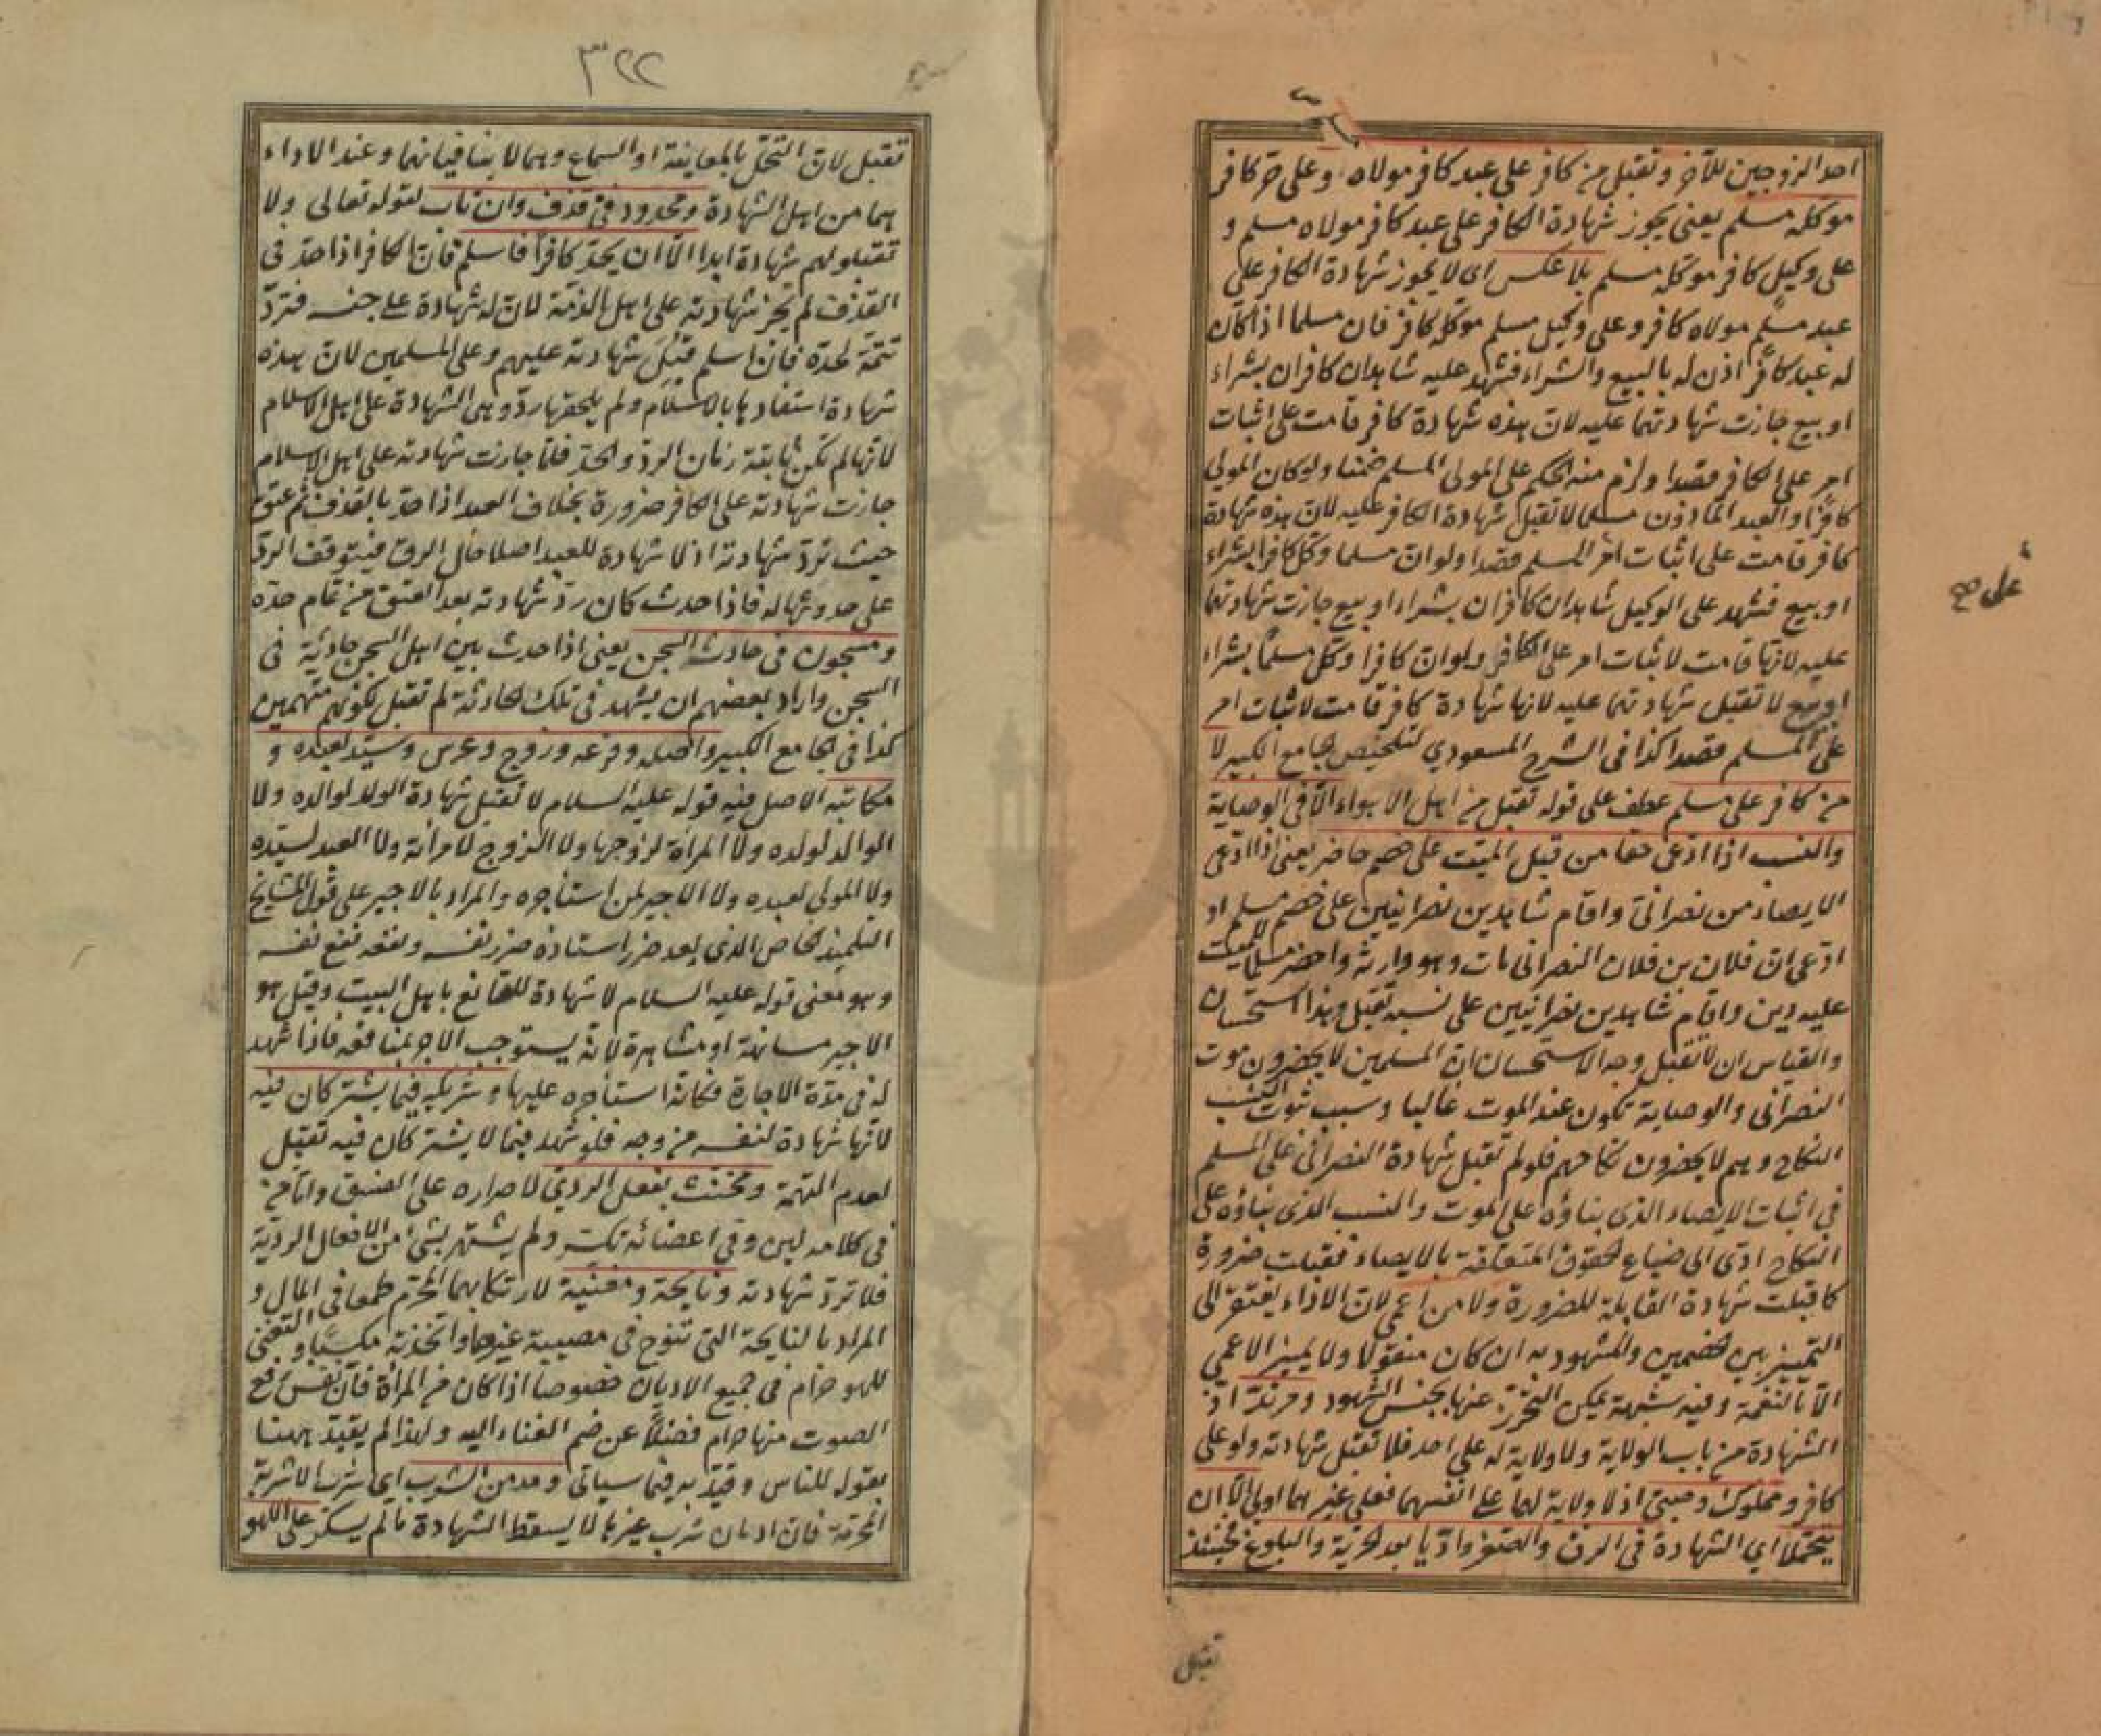 احد الزوجين للآخر وتقبل من كافر على عبد كافر مولاه، وعلى حر كافر
موكله مسلم يعنى يجوز شهادة الكافر على عبد كافر مولاه مسلم و
على وكيل كافر موكله مسلم بلا عكس اى لا يجوز شهادة الكافر على
عبد مسلم مولاه كافر وعلى وكيل مسلم موكله كافر فان مسلما اذا كان
له عبد كافر اذن له بالبيع والشراء فشهد عليه شاهدان كافران بشراء
او بيع جازت شهادتهما عليه لان هذه شهادة كافر قامت على اثبات
امر على الكافر قصدا ولزم منه الحكم على المولى المسلم ضمنا ولو كان المولى
كافرا والعبد المأذون مسلما لا تقبل شهادة الكافر عليه لان هذه شهادة
كافر قامت على اثبات امر المسلم قصدا ولو ان مسلما وكل كافرا بشراء
على صح
او بيع فشهد على الوكيل شاهدان كافران بشراء او بيع جازت شهادتهما
عليه لانها قامت لاثبات امر على الكافر ولو ان كافرا وكل مسلما بشراء
او بيع لا تقبل شهادتهما عليه لانها شهادة كافر قامت لاثبات امر
على المسلم قصدا كذا فى الشرح المسعودي لتلخيص الجامع الكبير لا
من كافر على مسلم عطف على قوله تقبل من اهل الاهواء الا فى الوصاية
والنسب اذا ادعى حقا من قبل الميت على خصم حاضر يعنى اذا ادعى
الايصاء من نصرانى واقام شاهدين نصرانيين على خصم مسلم او
ادعى ان فلان بن فلان النصرانى مات وهو وارثه واحضر مسلما للميت
عليه دين واقام شاهدين نصرانيين على نسبه تقبل وهذا استحسان
والقياس ان لا تقبل وجه الاستحسان ان المسلمين لا يحضرون موت
النصرانى والوصاية تكون عند الموت غالبا وسبب ثبوت النسب
النكاح وهم لا يحضرون نكاحهم فلو لم تقبل شهادة النصرانى على المسلم
فى اثبات الايصاء الذى بناؤه على الموت والنسب الذى بناؤه على
النكاح ادى الى ضياع الحقوق المتعلقة بالايصاء فقبلت ضرورة
كما قبلت شهادة القابلة للضرورة ولا من اعمى لان الاداء يفتقر الى
التمييز بين الخصمين والمشهود به ان كان منقولا ولا يميز الاعمى
الا بالنغمة وفيه شبهة يمكن التحرز عنها بجنس الشهود ومرتد اذ
الشهادة من باب الولاية ولا ولاية له على احد فلا تقبل شهادته ولو على
كافر ومملوك وصبى اذ لا ولاية لهما على انفسهما فعلى غيرهما اولى الا ان
يتحملا اي الشهادة فى الرق والصغر واديا بعد الحرية والبلوغ فحينئذ
تقبل
٣٢٢
تقبل لان التحمل بالمعاينة او السماع وهما لا ينافيانهما وعند الاداء
هما من اهل الشهادة ومحدود فى قذف وان تاب لقوله تعالى ولا
تقبلوا لهم شهادة ابدا الا ان يحد كافرا فاسلم فان الكافر اذا حد فى
القذف لم تجز شهادته على اهل الذمة لان له شهادة على جنسه فترد
تتمة لحده فان اسلم قبلت شهادته عليهم وعلى المسلمين لان هذه
شهادة استفادها بالاسلام ولم يلحقها رد وهى الشهادة على اهل الاسلام
لانها لم تكن ثابتة زمان الرد والحد فلما جازت شهادته على اهل الاسلام
جازت شهادته على الكافر ضرورة بخلاف العبد اذا حد بالقذف ثم عتق
حيث ترد شهادته اذ لا شهادة للعبد اصلا حال الرق فيتوقف الرد
على حدوثها له فاذا حدث كان رد شهادته بعد العتق من تمام حده
ومسجون فى حادثة السجن يعنى اذا حدث بين اهل السجن حادثة فى
السجن واراد بعضهم ان يشهد فى تلك الحادثة لم تقبل لكونهم متهمين
كذا فى الجامع الكبير واصله وفرعه وزوج وعرس وسيد لعبده و
مكاتبه الاصل فيه قوله عليه السلام لا تقبل شهادة الولد لوالده ولا
الوالد لولده ولا المرأة لزوجها ولا الزوج لامرأته ولا العبد لسيده
ولا المولى لعبده ولا الاجير لمن استأجره والمراد بالاجير على قول المشايخ
التلميذ الخاص الذى يعد ضرر استاذه ضرر نفسه ونفعه نفع نفسه
وهو معنى قوله عليه السلام لا شهادة للقانع باهل البيت وقيل هو
الاجير مسانهة او مشاهرة لانه يستوجب الاجر بمنافعه فاذا شهد
له فى مدة الاجارة فكانه استأجره عليها وشريكه فيما يشتركان فيه
لانها شهادة لنفسه من وجه فلو شهد فيما لا يشتركان فيه تقبل
لعدم التهمة ومخنث بفعل الردي لاصراره على الفسق واما من
فى كلامه لين وفى اعضائه تكسر ولم يشتهر بشئ من الافعال الردية
فلا ترد شهادته ونايحة ومغنية لارتكابهما المحرم طمعا فى المال و
المراد بالنايحة التى تنوح فى مصيبة غيرها واتخذته مكسبا والتغنى
للهو حرام فى جميع الاديان خصوصا اذا كان من المرأة فان نفس رفع
الصوت منها حرام فضلا عن ضم الغناء اليه ولهذا لم يقيد ههنا
بقوله للناس وقيد به فيما سياتى ومدمن الشرب اى شرب الاشربة
المحرمة فان ادمان شرب غيرها لا يسقط الشهادة ما لم يسكر على اللهو